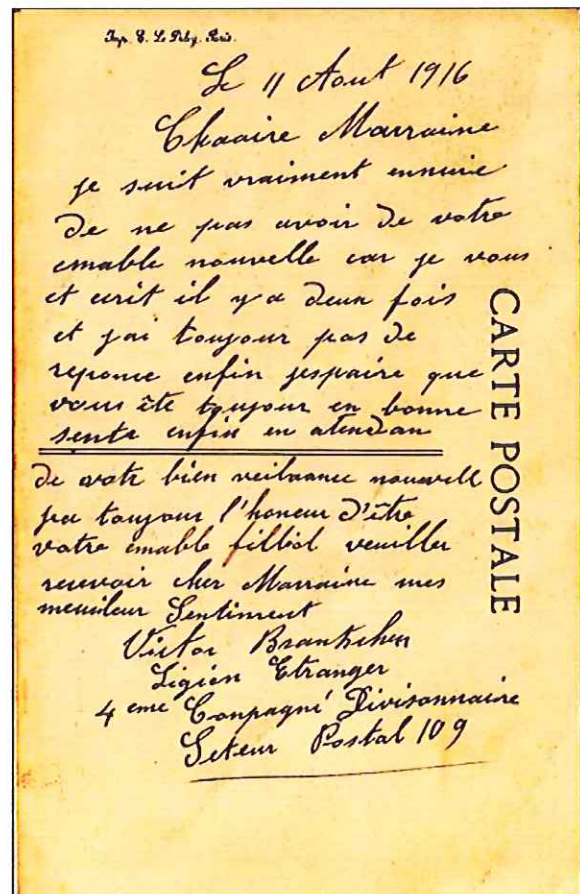 Imp. E. Le Deley. Paris.
Le 11 Aout 1916
Chaaire Marraine
je suit vraiment ennuie
de ne pas avoir de votre
emable nouvelle car je vous
et ecrit il y a deux fois
et jai toujour pas de
reponce enfin jespaire que
vous ête toujour en bonne
sente enfin en atendan
de votr bien veilaance nouvell
jea toujour l'honeur d'être
votre emable filleol veuiller
recevoir cher Marraine mes
meuileur Sentiment
Victor Brantschen
Ligien Etranger
4 eme Conpagné Divisonnaire
Seteur Postal 109
CARTE POSTALE